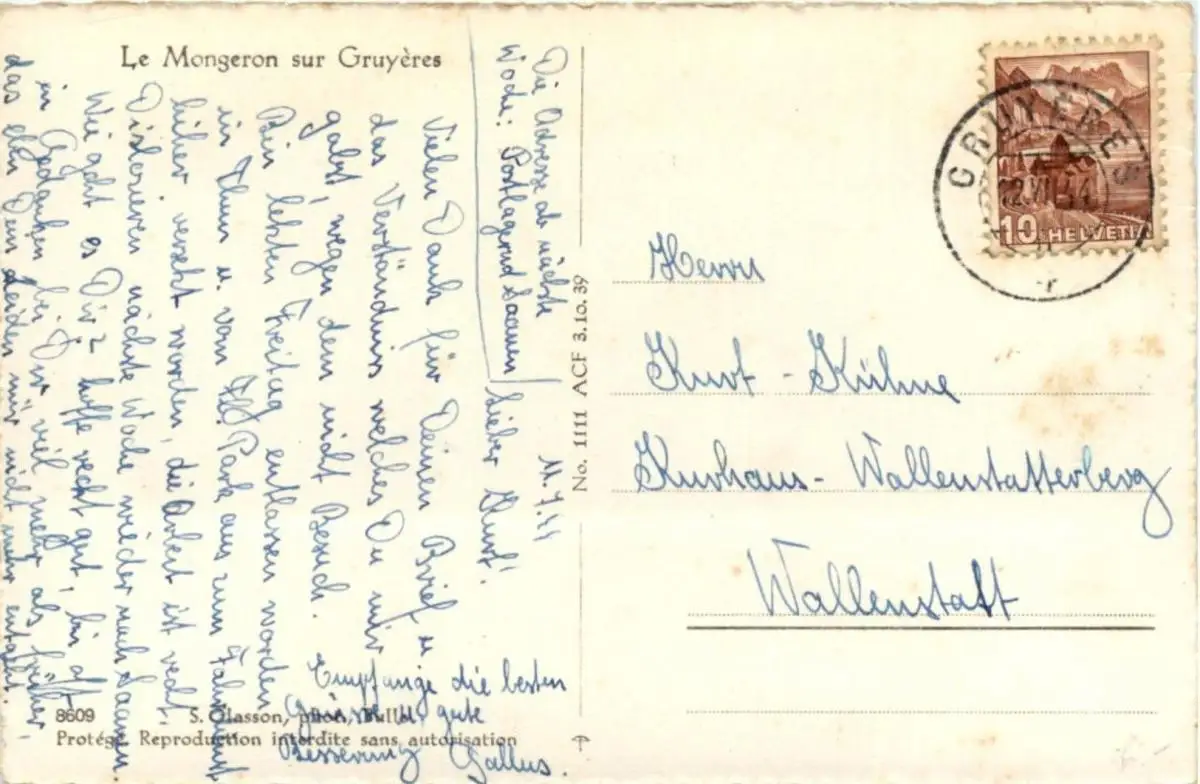 Le Mongeron sur Gruyères
Die Adresse ab nächste
Woche: Postlagernd Saanen
11.7.44
Lieber Kurt!
Vielen Dank für Deinen Brief u
das Verständnis welches Du mir
gabst, wegen dem nicht Besuch.
Bin letzten Freitag entlassen worden
in Thun u. vom Park aus zum
hieher versetzt worden, die Arbeit ist recht.
Dislozieren nächste Woche wieder nach Saanen
Wie geht es Dir? hoffe recht gut, bin oft
in Gedanken bei Dir viel mehr als früher,
das eben Dein Leiden mir nicht mehr
Empfange die besten
Grüsse u. gute
Besserung Gallus.
8609 S. Glasson, phot., Bulle
Protégé. Reproduction interdite sans autorisation
No. 1111 ACF 3.10.39
GRUYÈRES
12.VII.44
10 HELVETIA
Herrn
Kurt - Kühne
Kurhaus - Wallenstatterberg
Wallenstatt